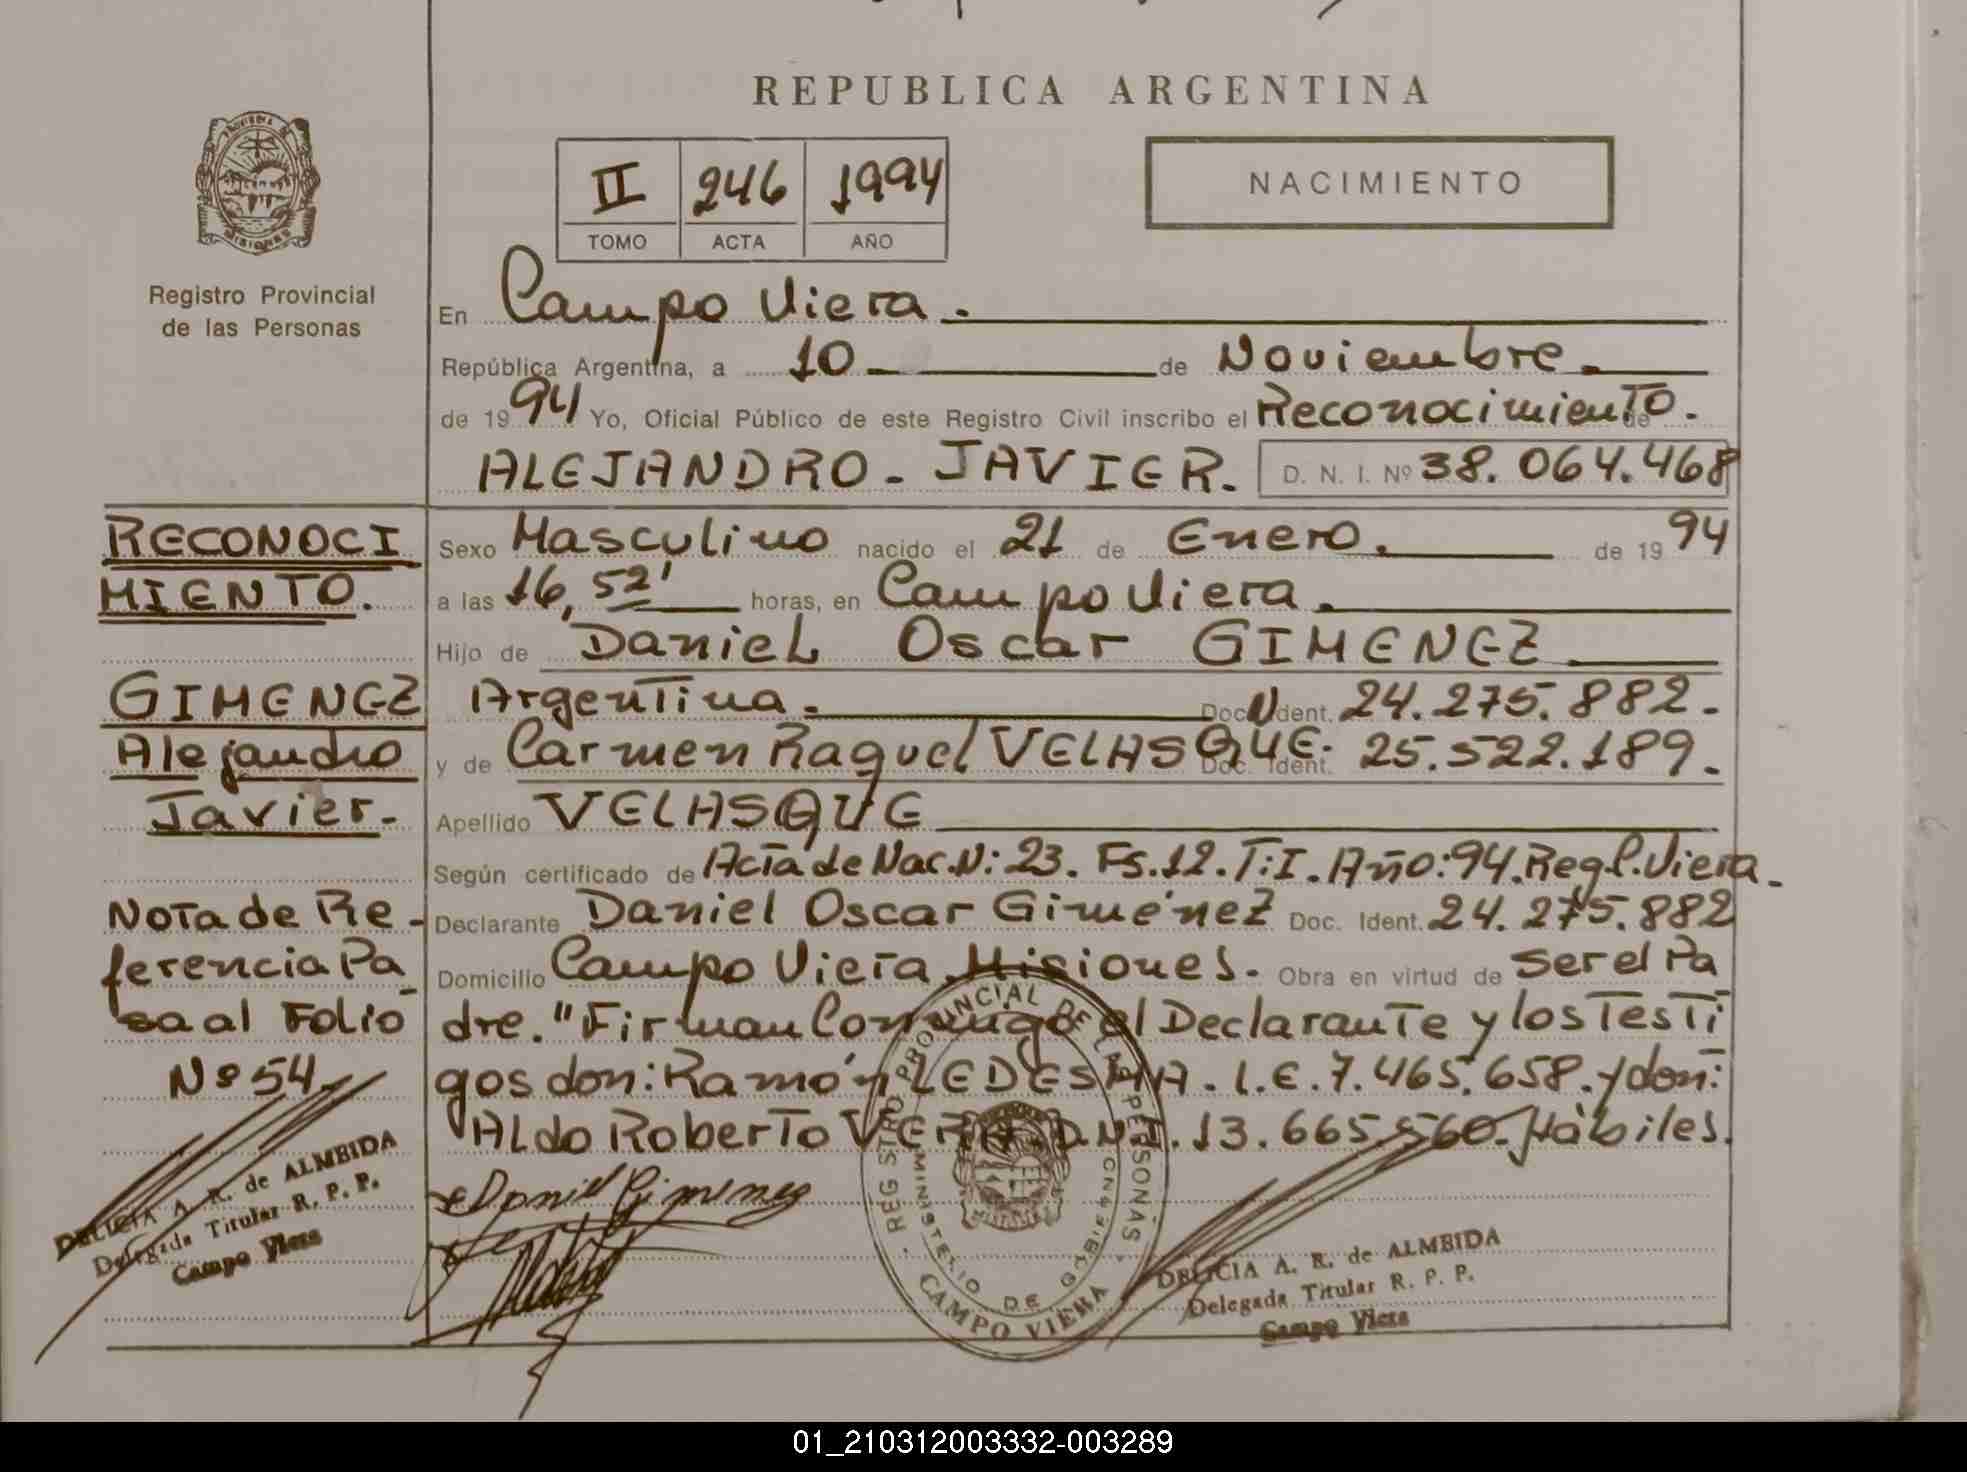 REPUBLICA ARGENTINA
II 246 1994
TOMO ACTA AÑO
NACIMIENTO
PROVINCIA DE
MISIONES
Registro Provincial
de las Personas
En Campo Viera.
República Argentina, a 10 de Noviembre.
de 1994 Yo, Oficial Público de este Registro Civil inscribo el Reconocimiento. de
ALEJANDRO - JAVIER. D. N. I. Nº 38.064.468
RECONOCI
MIENTO.
GIMENEZ
Alejandro
Javier.-
Nota de Re-
ferencia Pa
sa al Folio
Nº 54.
DELICIA A. R. de ALMEIDA
Delegada Titular R. P. P.
Campo Viera
Sexo Masculino nacido el 21 de Enero. de 1994
a las 16,52' horas, en Campo Viera.
Hijo de Daniel Oscar GIMENEZ
Argentina. Doc. Ident. 24.275.882.
y de Carmen Raquel VELASQUE. Doc. Ident. 25.522.189.
Apellido VELASQUE
Según certificado de Acta de Nac. N: 23. Fs. 12. T: I. Año: 94. Reg. C. Viera.
Declarante Daniel Oscar Giménez Doc. Ident. 24.275.882
Domicilio Campo Viera, Misiones. Obra en virtud de ser el Pa
dre. "Firman Conmigo el Declarante y los Testi
gos don: Ramón LEDESMA. L.E. 7.465.658. y don:
Aldo Roberto VERA D.N.I. 13.665.560. Hábiles.
Daniel Gimenez
REGISTRO PROVINCIAL DE LAS PERSONAS
MINISTERIO DE GOBIERNO
CAMPO VIERA
DELICIA A. R. de ALMEIDA
Delegada Titular R. P. P.
Campo Viera
01_210312003332-003289